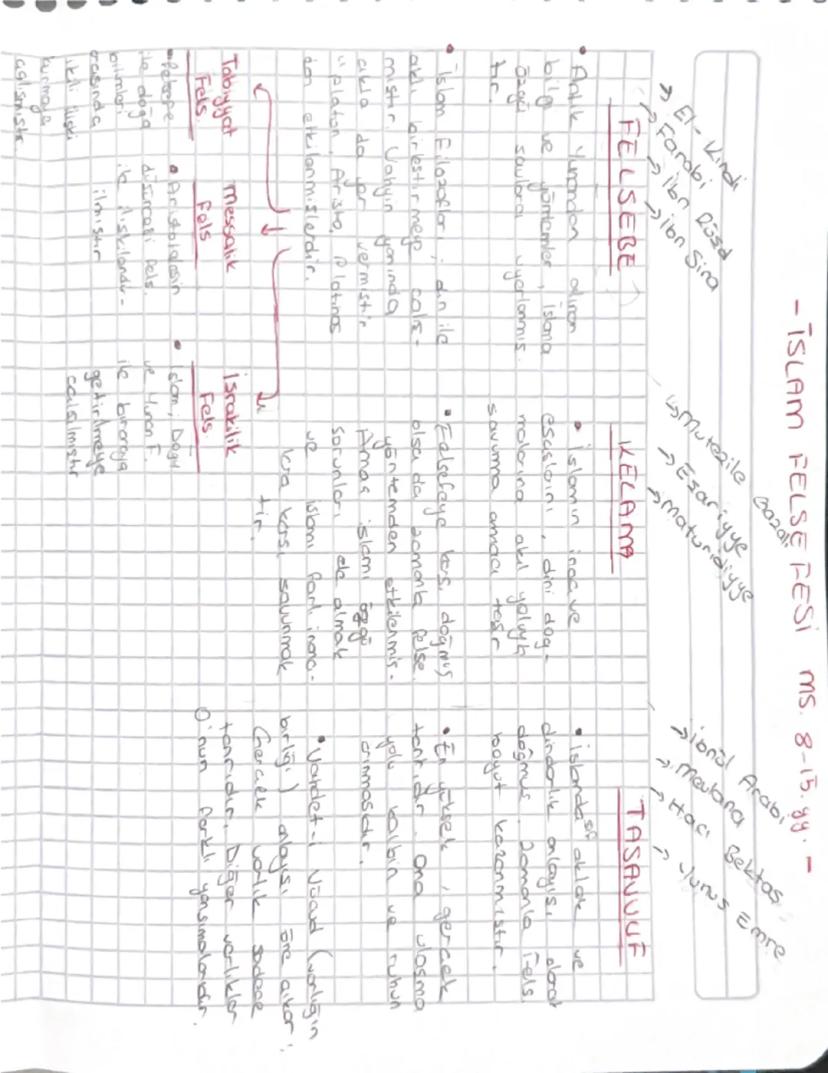 - İSLAM FELSEFESİ ms. 8-15. yy. -
→ El-Kindi
→ Farabi
→ İbn Rüşd
→ İbn Sina
FELSEBE
• Antik Yunandan alınan
bilgi ve yöntemler, İslama
özgü savlara uyarlanmış
tır.
• İslam Filozofları; din ile
aklı birleştirmeye çalış-
mıştır. Vahyin yanında
akla da yer vermiştir
" platon, Aristo, Plotinos
dan etkilenmişlerdir.
Tabiyyat
Fels.
• Felsefe
ile doğa
bilimleri
arasında
ikili ilişki
kurmaya
çalışmıştır.
Messailik
Fels
• Aristotalesin
düşüncesi Fels.
ile ilişkilendir-
ilmiştir
İsrakilik
Fels
• İslam, Doğu
ve Yunan F.
ile biraraya
getirilmeye
çalışılmıştır
↳ Mutezile
Gazali
→ Eşariyye
→ Maturidiyye
KELAM
• İslamın inanç ve
esaslarını, dini dog-
malarına akıl yoluyla
savunma amacı taşır
• Felsefeye karşı doğmuş
olsa da zamanla felse.
yöntemden etkilenmiş-
Amaç islami özgü
sorunları ele almak
ve islamı farklı inanç-
lara karşı savunmak
tır.
→ İbnül Arabi
→ Mevlana
→ Hacı Bektaş
→ Yunus Emre
TASAVVUF
• İslamda sf ahlak ve
dindarlık anlayışı olarak
doğmuş zamanla Fels.
boyut kazanmıştır.
• En yüksek, gerçek
tanrıdır. Ona ulaşma
yolu kalbin ve ruhun
arınmasıdır.
• Vahdet-i Vücud (varlığın
birliği) anlayışı öne çıkar.
Gerçek varlık sadece
tanrıdır. Diğer varlıklar
O'nun farklı yansımalarıdır.